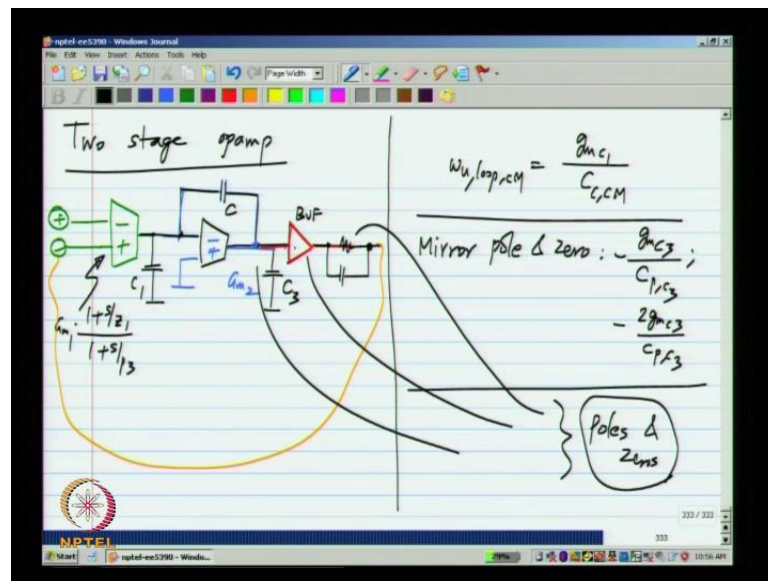 nptel-ee5390 - Windows Journal
File Edit View Insert Actions Tools Help
Page Width
B I
Two stage opamp
C
BUF
C1
Gm2
C3
Gm1 · (1+s/z1)/(1+s/p3)
ωu,loop,CM = gmc1/Cc,CM
Mirror pole & zero : - gmc3/Cp,c3 ;
- 2gmc3/Cp,c3
Poles &
zeros
NPTEL
333 / 333
333
Start
nptel-ee5390 - Windo...
29%
10:56 AM